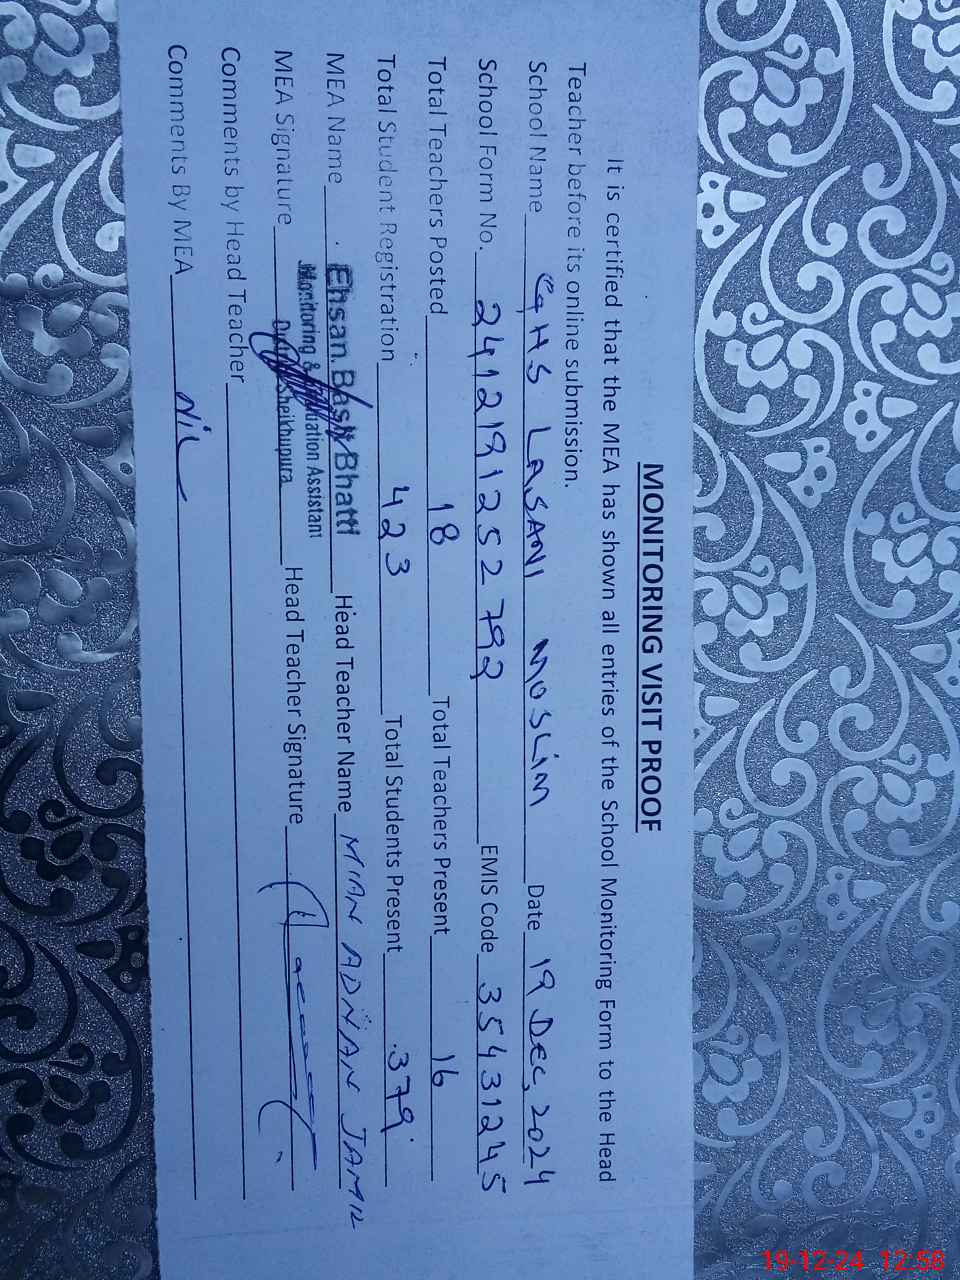 MONITORING VISIT PROOF
It is certified that the MEA has shown all entries of the School Monitoring Form to the Head
Teacher before its online submission.
School Name GHS LASANI MOSLIM Date 19 Dec, 2024
School Form No. 2412191252792 EMIS Code 35431245
Total Teachers Posted 18 Total Teachers Present 16
Total Student Registration 423 Total Students Present 379
MEA Name Ehsan Bashir Bhatti Head Teacher Name MIAN ADNAN JAMIL
Monitoring & Evaluation Assistant
MEA Signature Sheikhupura Head Teacher Signature
Comments by Head Teacher
Comments By MEA NiL
19-12-24 12:58